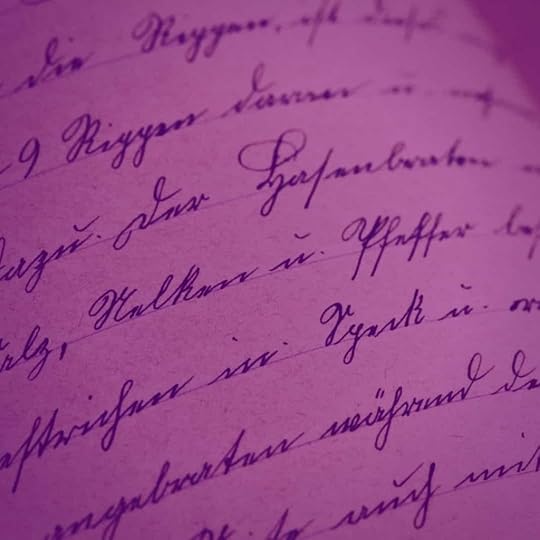 die Rippen, ist diese
9 Rippen daran u.
dazu. Der Hasenbraten
Salz, Nelken u. Pfeffer
estrichen in. Speck u.
angebraten während de
auch mit